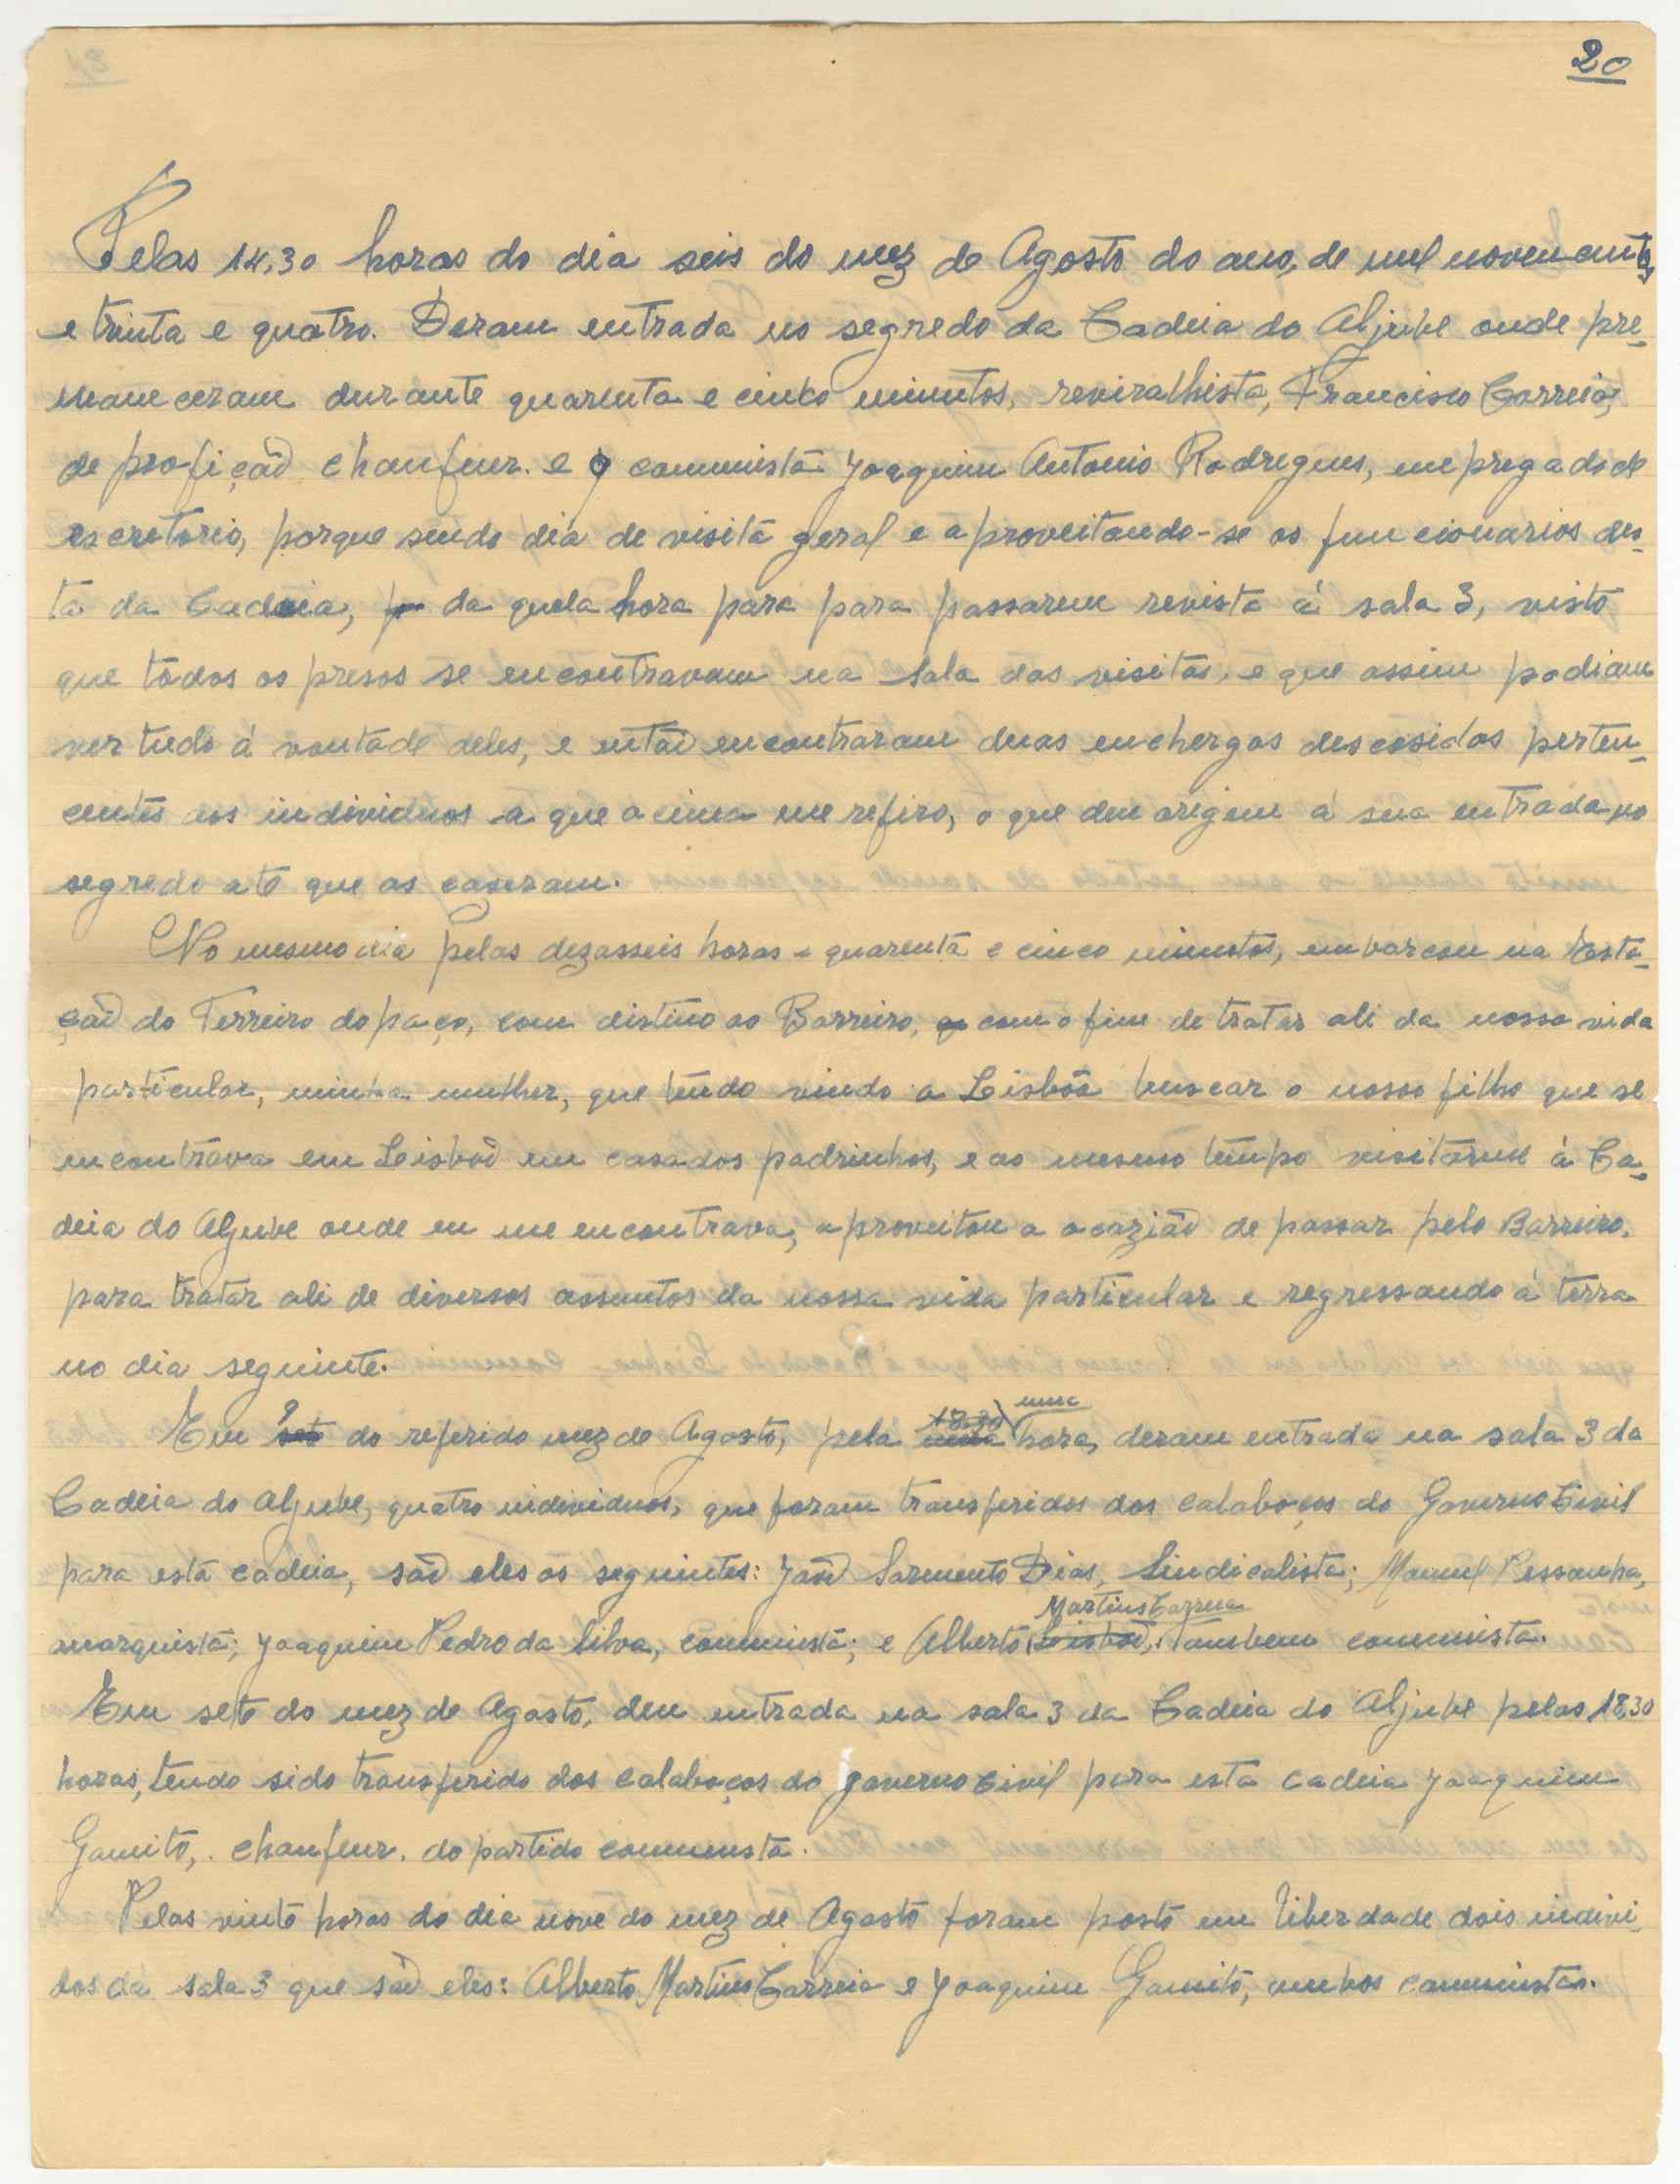 20
Pelas 14,30 horas do dia seis do mez de Agosto do ano, de mil novencentos
e trinta e quatro. Deram entrada no segredo da Cadeia do Aljube onde pre-
maneceram durante quarenta e cinko minutos, reviralhista, Francisco Correia,
de profição chaufeur. e o comunista Joaquim Antonio Rodregues, empregado de
escretorio, porque sendo dia de visita geral e aproveitando-se os funcionarios des-
ta da Cadeia, da quela hora para para passarem revista á sala 3, visto
que todos os presos se encontravam na sala das visitas, e que assim podiam
ver tudo á vontade deles, e então encontraram duas enchergas descosidas perten-
centes aos individuos a que acima me refiro, o que deu origem á sua entrada no
segredo até que as coseram.
No mesmo dia pelas dezasseis horas e quarenta e cinco minutos, embarcou na Esta-
ção do Terreiro do paço, com distino ao Barreiro, com o fim de tratar ali da nossa vida
particular, minha mulher, que tendo vindo a Lisbôa buscar o nosso filho que se
encontrava em Lisboa em casa dos padrinhos, e ao mesmo tempo visitarme á Ca-
deia do Aljube onde eu me encontrava, aproveitou a ocazião de passar pelo Barreiro.
para tratar ali de diversos assuntos da nossa vida particular e regressando á terra
no dia seguinte.
Em 9 do referido mez de Agosto, pela uma hora, deram entrada na sala 3 da
Cadeia do Aljube, quatro individuos, que foram transferidos dos calaboços do Governo Civil
para esta cadeia, são eles os seguintes: João Sarmento Dias, Sindicalista; Manuel Pessanha,
anarquista; Joaquim Pedro da Silva, comunista; e Alberto Martins Correia, tambem comunista.
Em sete do mez de Agosto, deu entrada na sala 3 da Cadeia do Aljube pelas 18,30
horas, tendo sido transferido dos calaboços do governo civil para esta cadeia Joaquim
Gamito,. chaufeur. do partido comunista.
Pelas vinte horas do dia nove do mez de Agosto foram posto em liberdade dois indivi-
dos da sala 3 que são eles: Alberto Martins Correia e Joaquim Gamito, ambos comunistas.